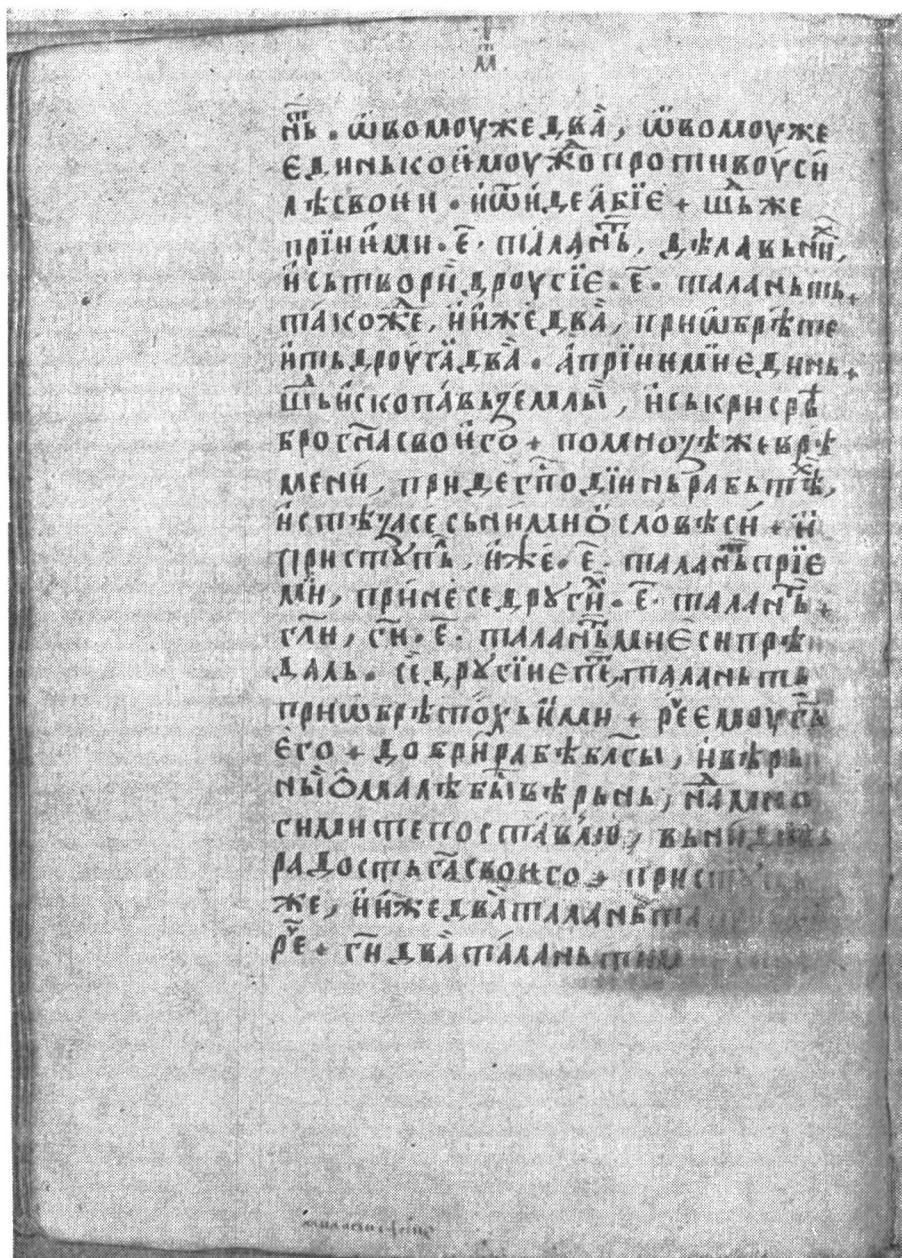 нⷮь · ѡ҆вомоуже два̀, ѡ҆вомоуже
е҆динь комоужⷣо противоу си
лѣ своѥи · и҆ ѿи́де а҆бїѥ + шⷣь же
прїи́ми · е҃ · талаⷩ҇ть, дѣла вь ниⷯ,
и҆ сьтвори̏ дроугїѥ · е҃ · таланьть +
такожⷣе, и҆ и҆же два̀, приѡбрѣте
и҆ть дроуга̏ два̀ · а҆ прїими и҆единь +
шⷣь и҆скопа́вь ꙁемлы̀, и҆ ськри срѣ
бро гн҃а своѥго + по мноꙁѣже врѣ
мени̏, приде гпⷭ҇одїинь рабь тѣⷯ,
и҆ стѣꙁа се сь ними ѡ҆ словѣси + и҆
пристꙋпⷧь, и҆же · е҃ · талаⷩ҇ть прїе
ми, прине́се дрꙋгиⷯ · е҃ · талаⷩ҇ть +
гл҃и, ги҃ · е҃ · талаⷩ҇ть мнѣ ѥ҆си прѣ
даль · се дрꙋгїиѥ петⷮ, таланьть
приѡбрѣтохь и҆ми + рⷱ҇е ѥ҆моу гь҃
ѥ҆го + добри рабѣ бл҃гы, и҆ вѣрь
ны̏ ѡ҆ малѣ бы̏ вѣрьнь, наⷣ мно
гими те поста́влю̀, вьниди вь
радость га҃ своѥго + пристꙋпь
же, и҆ и҆же два̀ таланьта
рⷱ҇е + ги҃ два̀ таланьтим